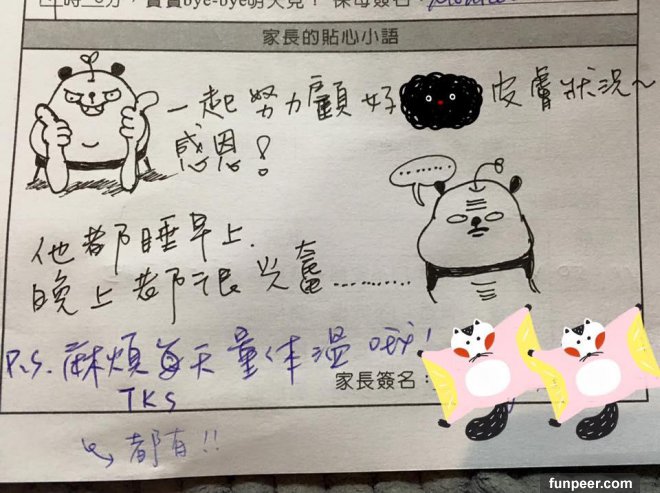 時 分，寶寶bye-bye明天見！ 保母簽名：
家長的貼心小語
一起努力顧好 皮膚狀況~
感恩！
........
他都睡早上.
晚上都很興奮.........
P.S. 麻煩每天量体溫哦！
家長簽名：
TKS
都有!!
funpeer.com